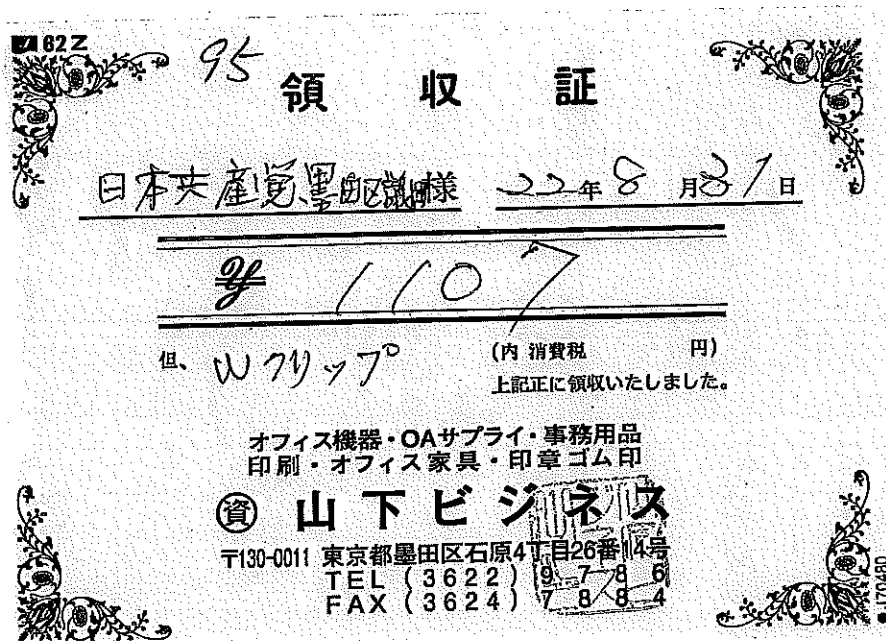 62Z
95
領収証
日本共産党墨田区議団様 22年8月31日
¥1107
但、Wクリップ (内 消費税 円)
上記正に領収いたしました。
オフィス機器・OAサプライ・事務用品
印刷・オフィス家具・印章ゴム印
資 山下ビジネス
〒130-0011 東京都墨田区石原4丁目26番14号
TEL (3622) 9786
FAX (3624) 7884
170480